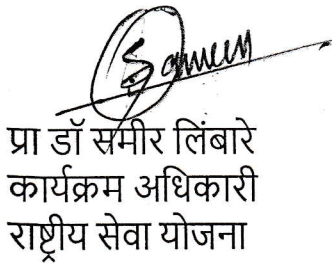 Sameer
प्रा डॉ समीर लिंबारे
कार्यक्रम अधिकारी
राष्ट्रीय सेवा योजना